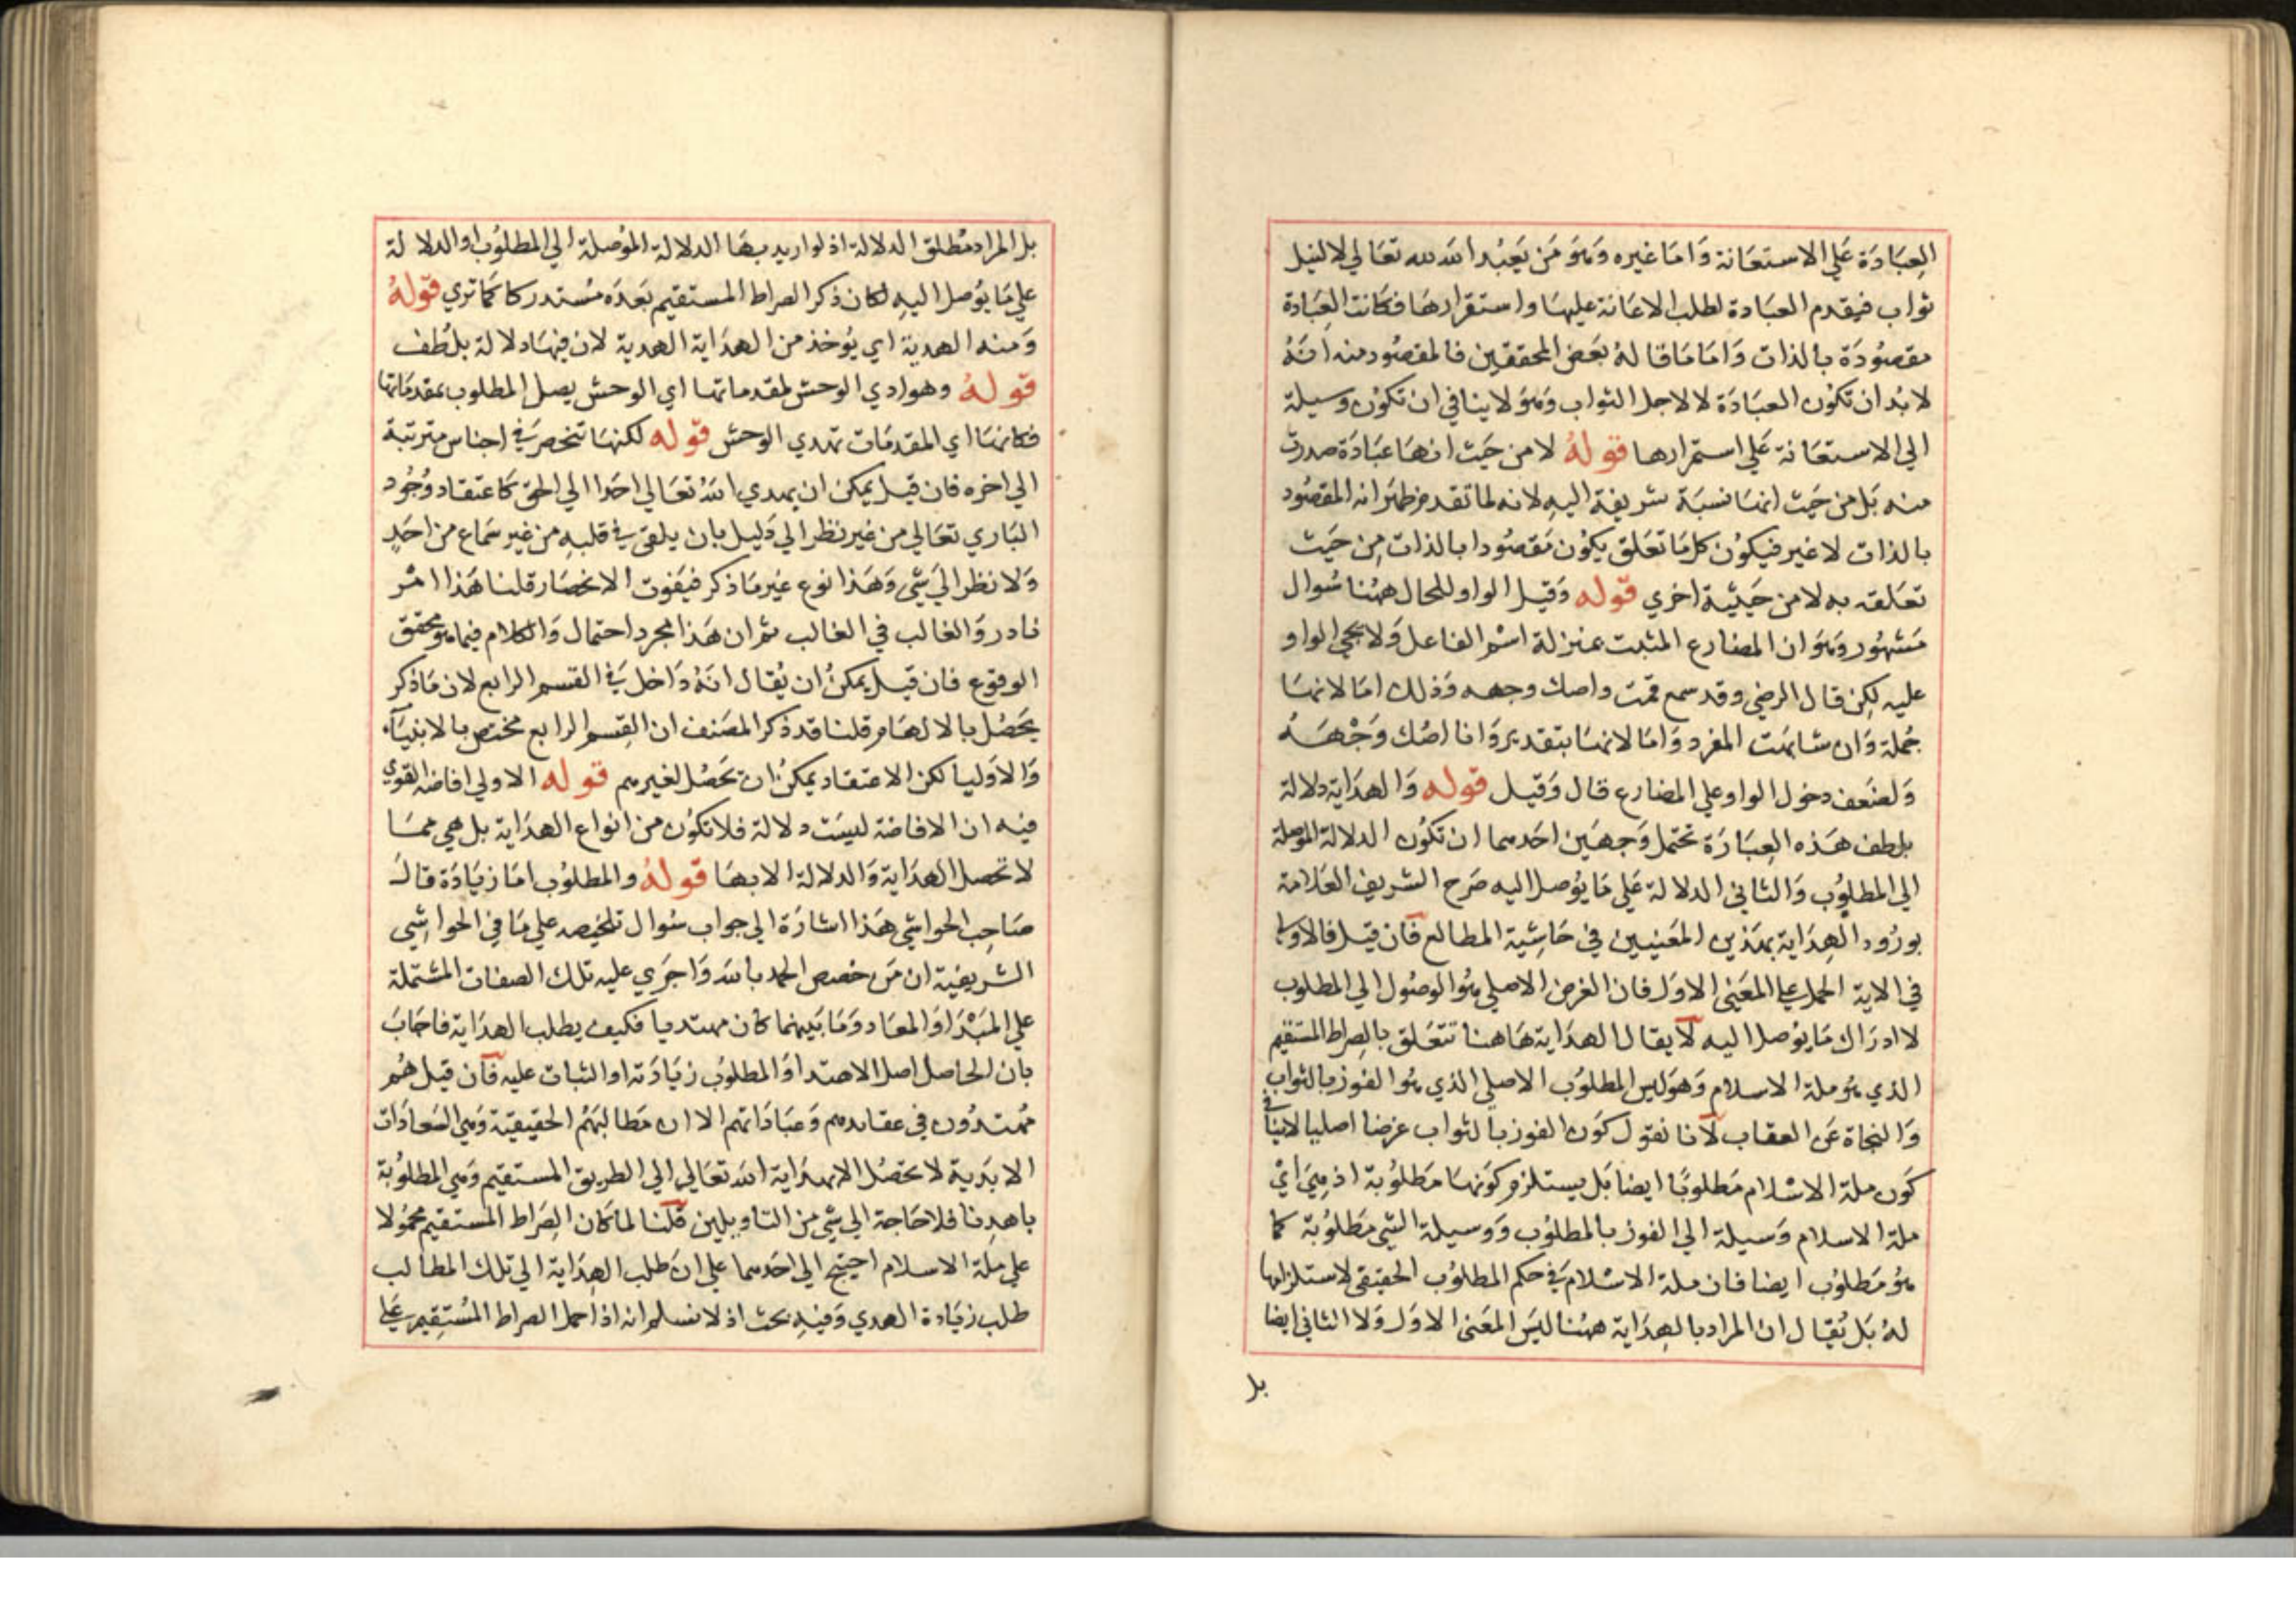 العِبَادَة عَلي الاستعَانة وَامَا غيره وَهوَ مَن يَعبُد الله لله تعَالي لا لنيل
ثواب فيقدم العبَادة لطلب الاعَانة عليهَا واستقرارهَا فكَانت العِبَادة
مقصُودَة بالذات وَامَا مَا قالهُ بَعض المحققين فالمقصُود منه انهُ
لا بُد ان تكوُن العبَادَة لا لاجل الثواب وَهوَ لا ينافي ان تكوُن وسيلة
الي الاستعَانة عَلي استمرارها قولهُ لا من حَيث انهَا عبَادَة صدرت
منه بَل من حَيث انهَا نسبَة شريفة اليهِ لانه لما تقدم ظهَر انه المقصُود
بالذات لا غير فيكوُن كل مَا تعَلق يكوُن مَقصُودا بالذات مِن حَيث
تعَلقه به لا من حَيثيَة اخري قوله وَقيل الواو للحال ههُنا سُوال
مَشهُور وَهوَ ان المضارع المثبت بمنزلة اسْم الفاعل وَلا يجي الواو
عليه لكِن قال الرضي وقد سمع قمت واصك وجهه وَذلك امَا لانهَا
جُملة وَان شابهَت المفرد وَامَا لانهَا بتقدير وَانا اصُك وَجْهَهُ
وَلضَعف دخول الواو علي المضارع قال وَقيل قوله وَالهدَاية دلالة
بلطف هَذه العِبَارَة تحتمل وَجهَين احَدهما ان تكوُن الدلالة الموصلة
الي المطلوُب وَالثاني الدلالة عَلي مَا يوُصل اليه صَرح الشريف العَلامة
بورُود الهِدَاية بهَذين المعَنيين في حَاشِيَة المطالع فان قيل فالاولي
في الاية الحمل علي المعَني الاوَل فان الغرض الاصلي هُو الوصُول الي المطلوب
لا ادرَاك مَا يوُصل اليه لا يقال الهدَاية هَاهنا تتعَلق بالصِراط المستقيم
الذي هُو ملة الاسلام وَهوَ ليس المطلوُب الاصلي الذي هُوا لفوز بالثواب
وَالنجَاة عَن العقاب لانا نقول كوَن الفوز بالثواب غرضا اصليا لا ينافي
كوَن ملة الاسْلام مَطلوبًا ايضا بَل يستلزم كوَنهَا مَطلوُبة اذ هِيَ ايْ
ملة الاسلام وَسيلة الي الفوز بالمطلوُب وَوسيلة الشي مَطلوُبة كما
هوُ مَطلوُب ايضا فان ملة الاسْلام في حكم المطلوُب الحقيقي لاستلزامها
لهُ بَل يُقال ان المراد بالهِدَاية ههُنا ليسَ المعَنيَ الاوَل وَلا الثاني ايضا
بل
بل المراد مُطلق الدلالة اذ لو اريد بهَا الدلالة الموُصلة الي المطلوُب او الدلالة
علي مَا يوُصل اليهِ لكان ذكر الصراط المستقيم بَعدَه مُستدركا كمَا تري قولهُ
وَمنه الهدية اي يوُخذ من الهدَاية الهدية لان فيهَا دلالة بلُطف
قولهُ وهوادي الوحش لمقدماتها اي الوحش يصل المطلوب بمقدمَاتها
فكانهَا اي المقدمَات تهدي الوحش قوله لكنهَا تنحصرَ في اجناس مترتبة
الي اخره فان قيل يمكن ان يهدي اللهُ تعَالي احَدا الي الحق كاعتقاد وُجُود
البَاري تعَالي من غير نظر الي دَليل بان يلقي في قلبهِ من غير سَماع من احَدٍ
وَلا نظر اليَ شي وَهَذا نوع غير مَا ذكر فيَفوت الانحصَار قلنا هَذا امْر
نادر وَالغالب في الغالب ثم ان هَذا مجرد احتمال وَالكلام فيما هو محقق
الوقوع فان قيل يمكنُ ان يُقال انهُ دَاخل في القسم الرابع لان مَا ذكر
يحَصُل بالالهَام قلنا قد ذكر المصَنف ان القِسم الرابع مختص بالانبيَآء
وَالاوَليا لكن الاعتقاد يمكنُ ان يحَصُل لغيرهم قوله الاولي افاضة القوي
فيه ان الافاضة ليسَت دلالة فلا تكوُن من انواع الهدَاية بل هي ممَا
لا تحصل الهدَاية وَالدلالة الا بهَا قولهُ والمطلوُب امَا زيَادَة قالَ
صَاحِب الحوَاشي هَذا اشارَة الي جواب سُوال تلخيصه علي مَا في الحواشِي
الشريفية ان مَن خصص الحمد بالله وَاجرَي عليه تلك الصفات المشتملة
علي المبْدَا وَالمعَاد وَمَا بَينهما كان مهتديا فكيف يطلب الهدَاية فاجَابَ
بان الحاصل اصل الاهتدا وَالمطلوُب زيَادَته او الثبات عليه فان قيل هُم
مُهتدُون في عقايدهم وَعبَادَاتهم الا ان مَطالبَهُم الحقيقية وَهي السَعادَات
الابَدية لا تحصُل الا بهدَاية الله تعَالي الي الطريق المستقيم وَهي المطلوُبة
باهدِنا فلا حَاجة الي شي من التاويلين قلنا لما كان الصِرَاط المستقيم محموُلا
علي ملة الاسلام احتيج الي احَدهما علي ان طلب الهِدَاية الي تلك المطالب
طلب زيَادة الهدي وَفيهِ بحث اذ لا نسلم انه اذا حمل الصراط المُستِقيم عَلي